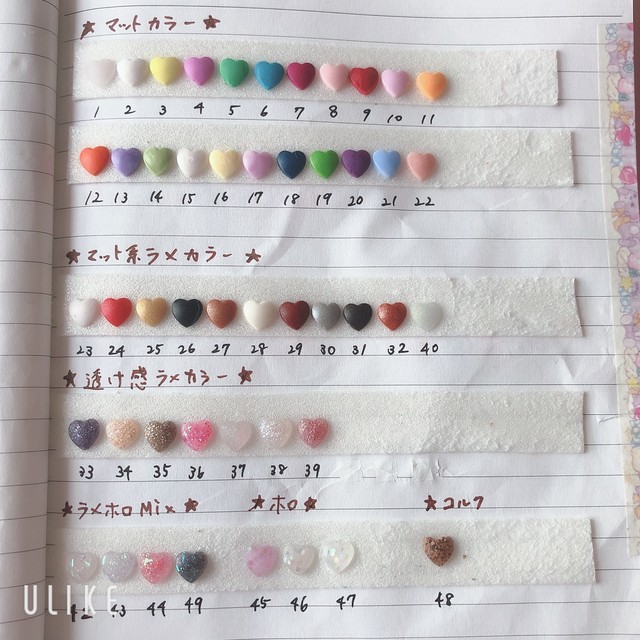 ★ マットカラー ★
1 2 3 4 5 6 7 8 9 10 11
12 13 14 15 16 17 18 19 20 21 22
★マット系ラメカラー ★
23 24 25 26 27 28 29 30 31 32 40
★透け感ラメカラー★
33 34 35 36 37 38 39
★ラメホロMix ★ ★ホロ★ ★コルク
43 44 49 45 46 47 48
ULIKE